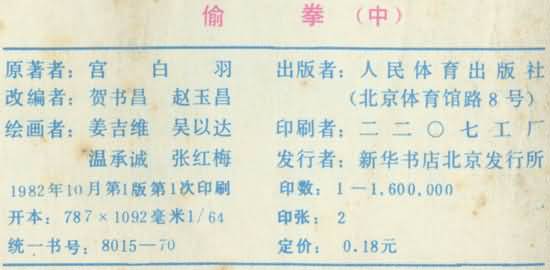 偷 拳（中）
原著者：宫白羽
改编者：贺书昌 赵玉昌
绘画者：姜吉维 吴以达
温承诚 张红梅
1982年10月第1版第1次印刷
开本：787×1092毫米1/64
统一书号：8015—70
出版者：人民体育出版社
（北京体育馆路8号）
印刷者：二二〇七工厂
发行者：新华书店北京发行所
印数：1—1,600,000
印张：2
定价：0.18元